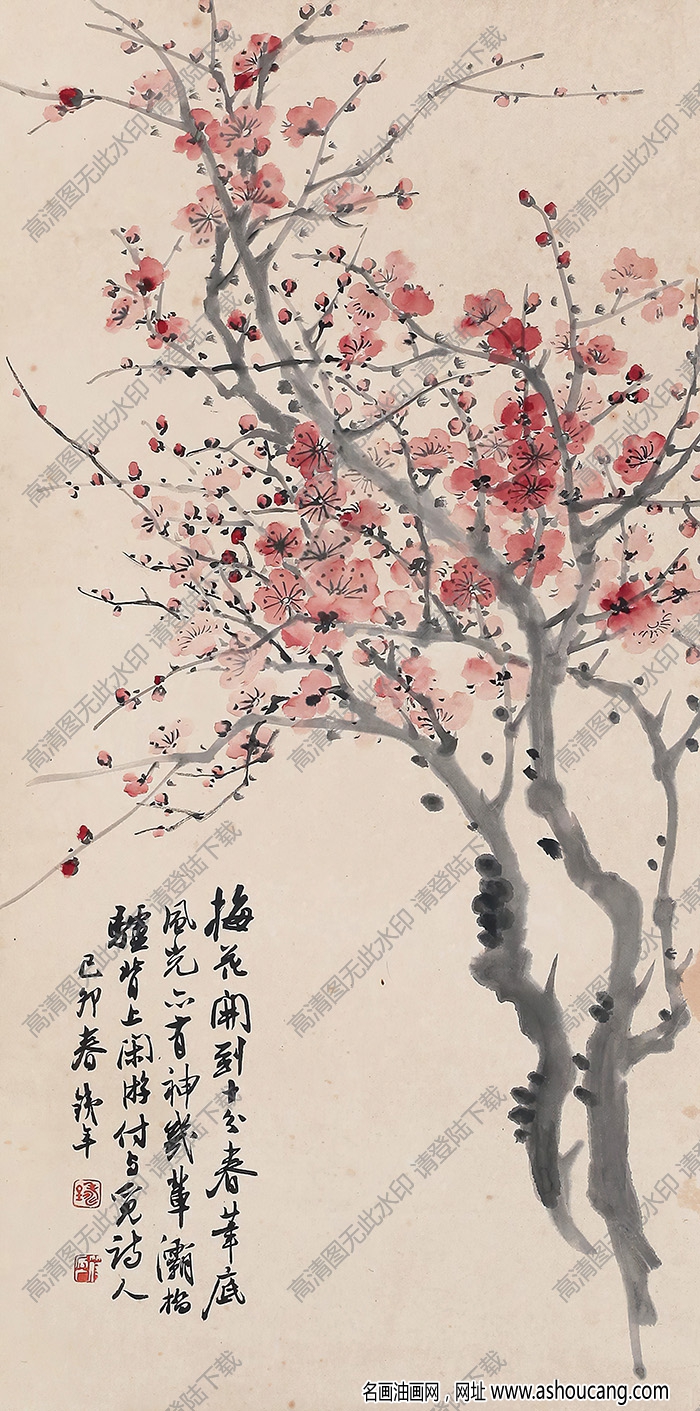 梅花開到十分春筆底
風光亦有神幾輩灞橋
驢背上閑游付与覓詩人
己卯春鐵年
高清图无此水印 请登陆下载
名画油画网，网址 www.ashoucang.com